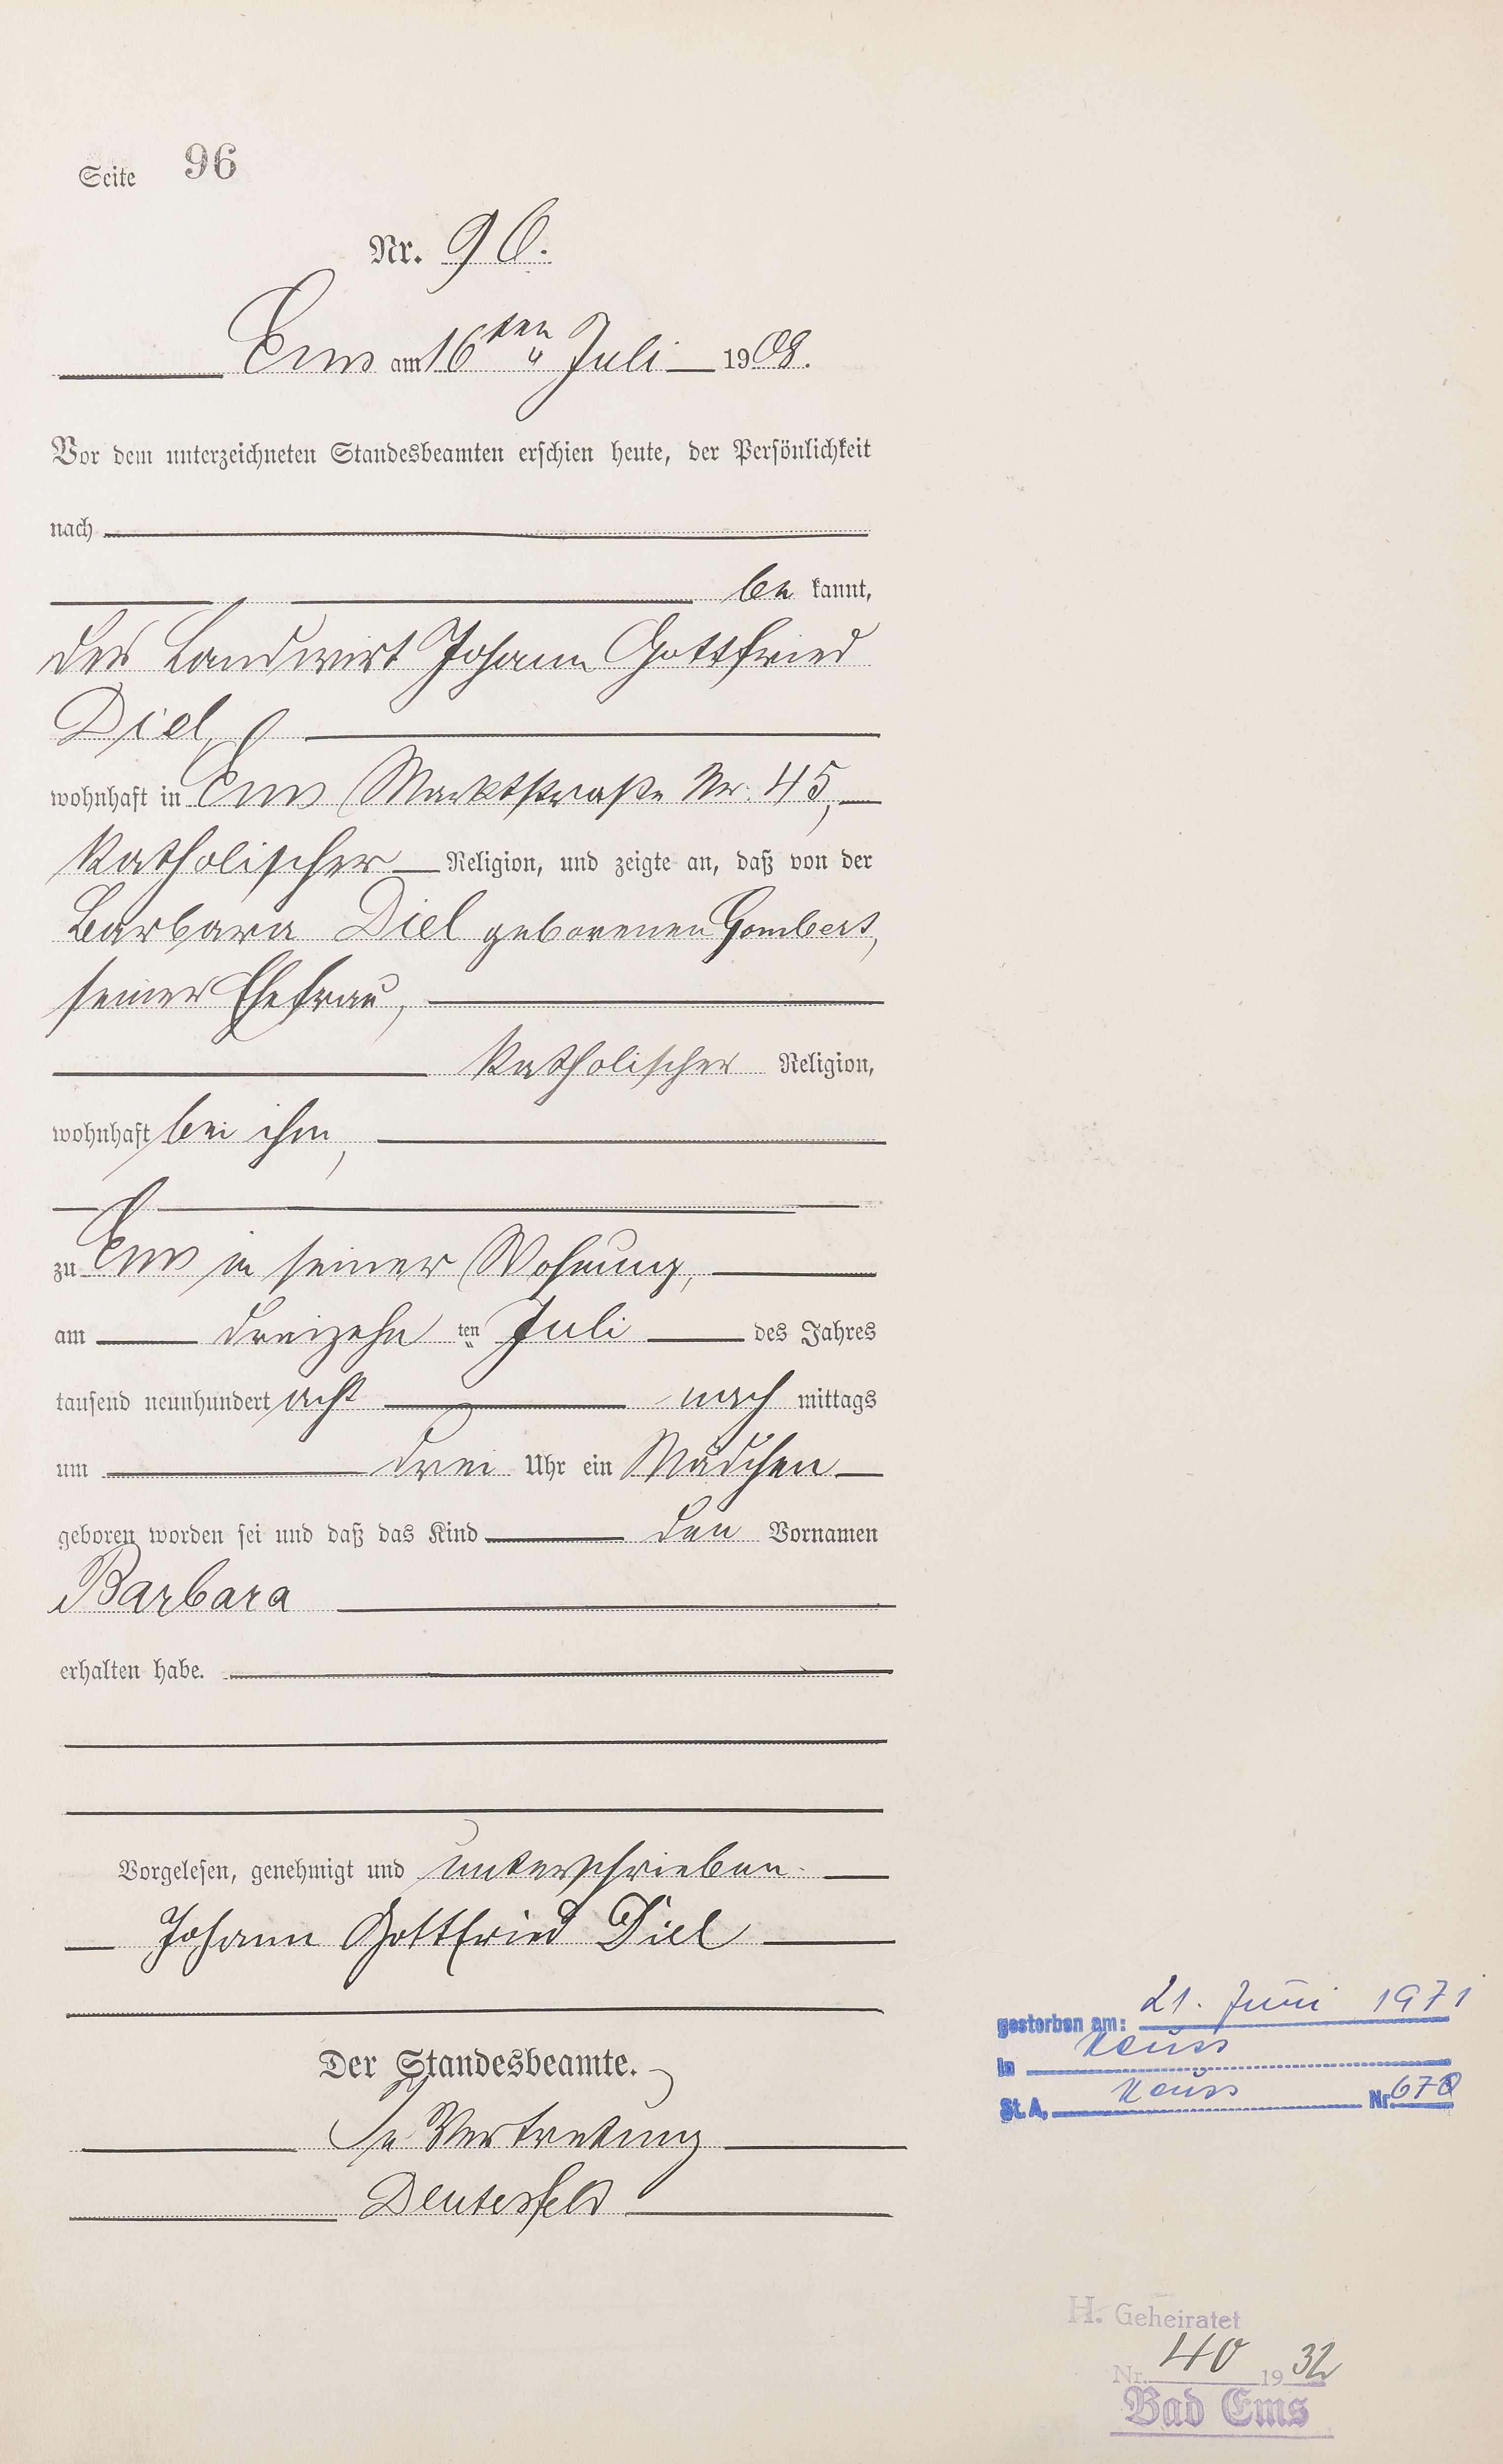 Seite 96
Nr. 90.
Ems am 16ten Juli 1908.
Vor dem unterzeichneten Standesbeamten erschien heute, der Persönlichkeit
nach
be kannt,
der Landwirt Johann Gottfried
Diel,
wohnhaft in Ems Marktstraße Nr. 45,
katholischer Religion, und zeigte an, daß von der
Barbara Diel geborenen Gombert,
seiner Ehefrau,
katholischer Religion,
wohnhaft bei ihm,
zu Ems in seiner Wohnung,
am dreizehn ten Juli des Jahres
tausend neunhundert acht nach mittags
um drei Uhr ein Mädchen
geboren worden sei und daß das Kind den Vornamen
Barbara
erhalten habe.
Vorgelesen, genehmigt und unterschrieben.
Johann Gottfried Diel
Der Standesbeamte.
In Vertretung
gestorben am: 21. Juni 1971
in Neuss
St. A. Neuss Nr. 670
H. Geheiratet
Nr. 40 1932
Bad Ems